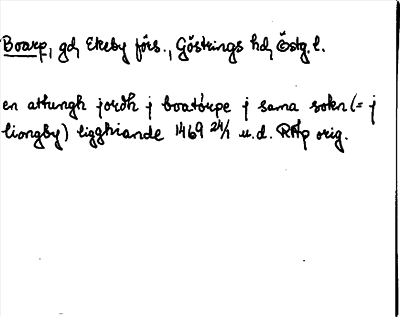 Boarp, gd, Ekeby förs., Göstrings hd, Östg. l.
en athungh jordh j boatorpe j sama sokn (= j
liongby) ligghiande 1469 24/1 u.d. RAp orig.